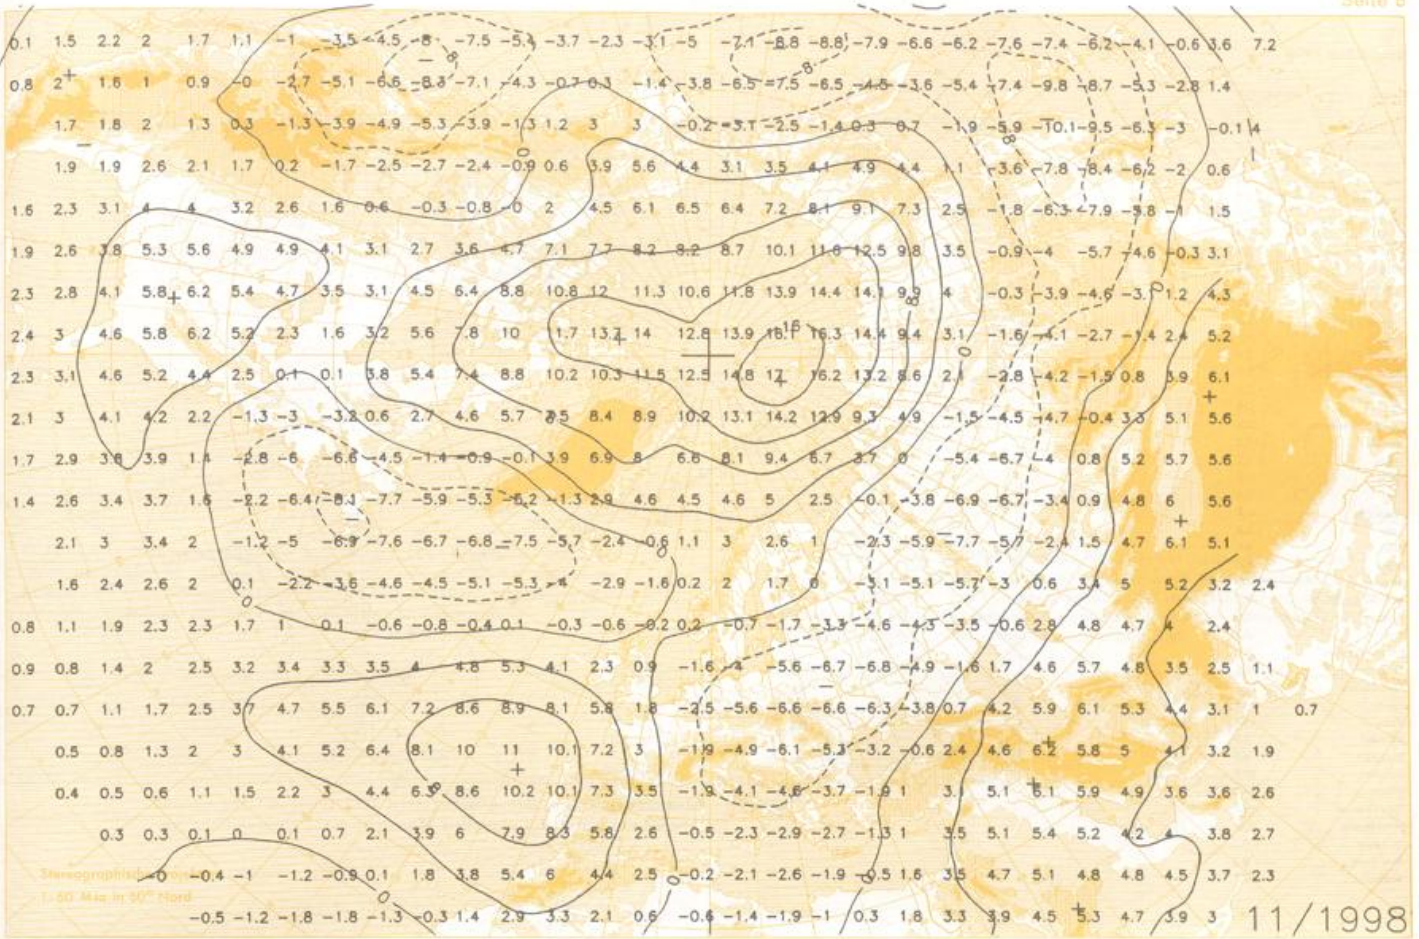 Seite 8
0.1 1.5 2.2 2 1.7 1.1 -1 -3.5 -4.5 -8 -7.5 -5.4 -3.7 -2.3 -3.1 -5 -7.1 -8.8 -8.8 -7.9 -6.6 -6.2 -7.6 -7.4 -6.2 -4.1 -0.6 3.6 7.2
0.8 2 1.6 1 0.9 -0 -2.7 -5.1 -6.6 -8.3 -7.1 -4.3 -0.7 0.3 -1.4 -3.8 -6.5 -7.5 -6.5 -4.5 -3.6 -5.4 -7.4 -9.8 -8.7 -5.3 -2.8 1.4
1.7 1.8 2 1.3 0.3 -1.3 -3.9 -4.9 -5.3 -3.9 -1.3 1.2 3 3 -0.2 -3.1 -2.5 -1.4 0.3 0.7 -1.9 -5.9 -10.1 -9.5 -6.3 -3 -0.1 4
1.9 1.9 2.6 2.1 1.7 0.2 -1.7 -2.5 -2.7 -2.4 -0.9 0.6 3.9 5.6 4.4 3.1 3.5 4.1 4.9 4.4 1.1 -3.6 -7.8 -8.4 -6.2 -2 0.6
1.6 2.3 3.1 4 4 3.2 2.6 1.6 0.6 -0.3 -0.8 -0 2 4.5 6.1 6.5 6.4 7.2 8.1 9.1 7.3 2.5 -1.8 -6.3 -7.9 -5.8 -1 1.5
1.9 2.6 3.8 5.3 5.6 4.9 4.9 4.1 3.1 2.7 3.6 4.7 7.1 7.7 8.2 8.2 8.7 10.1 11.6 12.5 9.8 3.5 -0.9 -4 -5.7 -4.6 -0.3 3.1
2.3 2.8 4.1 5.8 6.2 5.4 4.7 3.5 3.1 4.5 6.4 8.8 10.8 12 11.3 10.6 11.8 13.9 14.4 14.1 9.9 4 -0.3 -3.9 -4.6 -3.1 1.2 4.3
2.4 3 4.6 5.8 6.2 5.2 2.3 1.6 3.2 5.6 7.8 10 11.7 13.7 14 12.8 13.9 16.1 16.3 14.4 9.4 3.1 -1.6 -4.1 -2.7 -1.4 2.4 5.2
2.3 3.1 4.6 5.2 4.4 2.5 0.1 0.1 3.8 5.4 7.4 8.8 10.2 10.3 11.5 12.5 14.8 17 16.2 13.2 8.6 2.1 -2.8 -4.2 -1.5 0.8 3.9 6.1
2.1 3 4.1 4.2 2.2 -1.3 -3 -3.2 0.6 2.7 4.6 5.7 7.5 8.4 8.9 10.2 13.1 14.2 12.9 9.3 4.9 -1.5 -4.5 -4.7 -0.4 3.3 5.1 5.6
1.7 2.9 3.8 3.9 1.4 -2.8 -6 -6.6 -4.5 -1.4 -0.9 -0.1 3.9 6.9 8 6.6 8.1 9.4 6.7 3.7 0 -5.4 -6.7 -4 0.8 5.2 5.7 5.6
1.4 2.6 3.4 3.7 1.6 -2.2 -6.4 -8.1 -7.7 -5.9 -5.3 -6.2 -1.3 2.9 4.6 4.5 4.6 5 2.5 -0.1 -3.8 -6.9 -6.7 -3.4 0.9 4.8 6 5.6
2.1 3 3.4 2 -1.2 -5 -6.9 -7.6 -6.7 -6.8 -7.5 -5.7 -2.4 -0.6 1.1 3 2.6 1 -2.3 -5.9 -7.7 -5.7 -2.4 1.5 4.7 6.1 5.1
1.6 2.4 2.6 2 0.1 -2.2 -3.6 -4.6 -4.5 -5.1 -5.3 -4 -2.9 -1.6 0.2 2 1.7 0 -3.1 -5.1 -5.7 -3 0.6 3.4 5 5.2 3.2 2.4
0.8 1.1 1.9 2.3 2.3 1.7 1 0.1 -0.6 -0.8 -0.4 0.1 -0.3 -0.6 -0.2 0.2 -0.7 -1.7 -3.3 -4.6 -4.3 -3.5 -0.6 2.8 4.8 4.7 4 2.4
0.9 0.8 1.4 2 2.5 3.2 3.4 3.3 3.5 4 4.8 5.3 4.1 2.3 0.9 -1.6 -4 -5.6 -6.7 -6.8 -4.9 -1.6 1.7 4.6 5.7 4.8 3.5 2.5 1.1
0.7 0.7 1.1 1.7 2.5 3.7 4.7 5.5 6.1 7.2 8.6 8.9 8.1 5.8 1.8 -2.5 -5.6 -6.6 -6.6 -6.3 -3.8 0.7 4.2 5.9 6.1 5.3 4.4 3.1 1 0.7
0.5 0.8 1.3 2 3 4.1 5.2 6.4 8.1 10 11 10.1 7.2 3 -1.9 -4.9 -6.1 -5.3 -3.2 -0.6 2.4 4.6 6.2 5.8 5 4.1 3.2 1.9
0.4 0.5 0.6 1.1 1.5 2.2 3 4.4 6.3 8.6 10.2 10.1 7.3 3.5 -1.9 -4.1 -4.6 -3.7 -1.9 1 3.1 5.1 6.1 5.9 4.9 3.6 3.6 2.6
0.3 0.3 0.1 0 0.1 0.7 2.1 3.9 6 7.9 8.3 5.8 2.6 -0.5 -2.3 -2.9 -2.7 -1.3 1 3.5 5.1 5.4 5.2 4.2 4 3.8 2.7
-0 -0.4 -1 -1.2 -0.9 0.1 1.8 3.8 5.4 6 4.4 2.5 -0.2 -2.1 -2.6 -1.9 -0.5 1.6 3.5 4.7 5.1 4.8 4.8 4.5 3.7 2.3
Stereographische Projektion
1:60 Mio in 50° Nord
-0.5 -1.2 -1.8 -1.8 -1.3 -0.3 1.4 2.9 3.3 2.1 0.6 -0.6 -1.4 -1.9 -1 0.3 1.8 3.3 3.9 4.5 5.3 4.7 3.9 3 11/1998